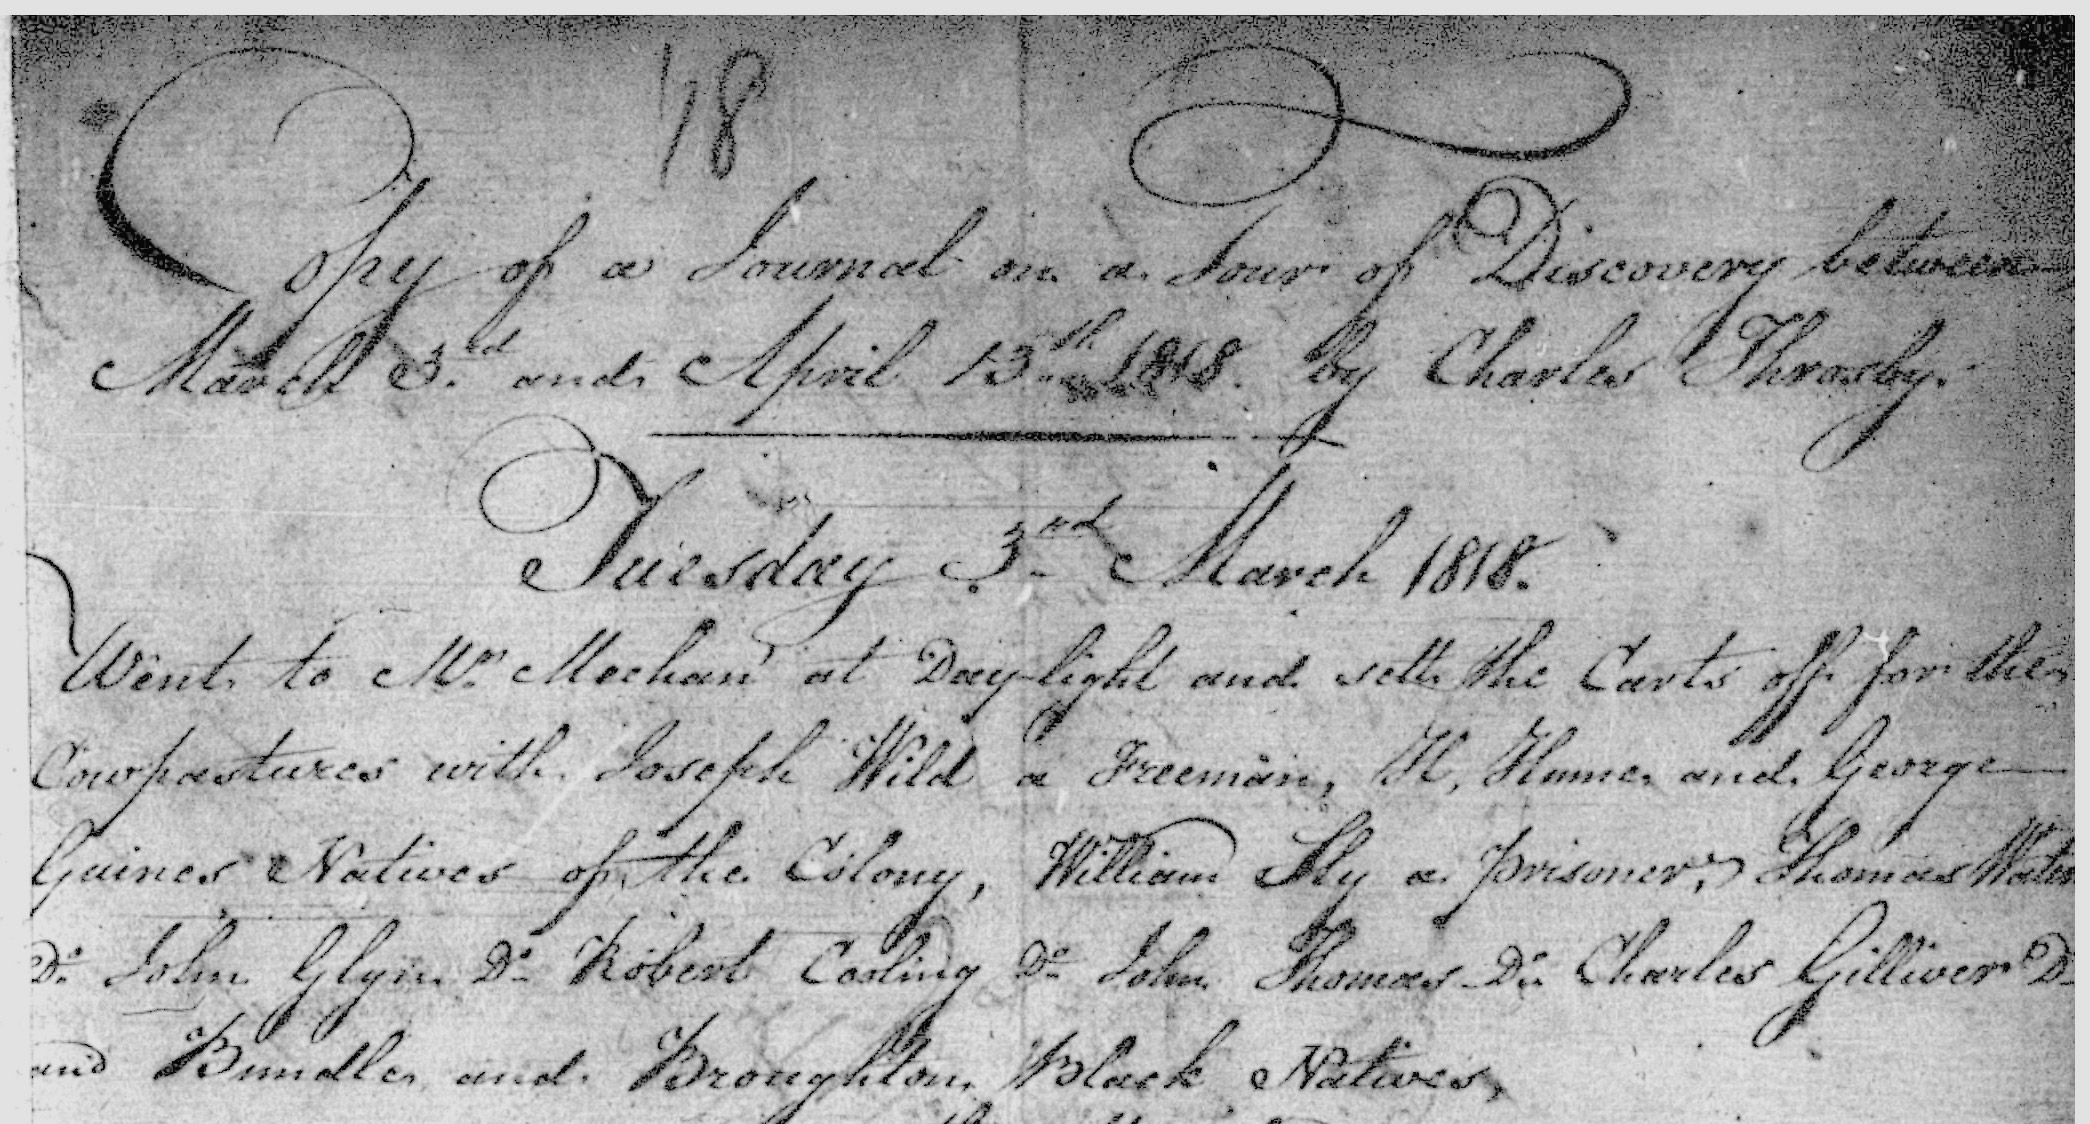 18
Copy of a Journal on a Tour of Discovery between
March 3rd and April 13th 1818. by Charles Throsby.
Tuesday 3rd March 1818.
Went to Mr. Meehan at Day-light and sett the Carts off for the
Cowpastures with Joseph Wild a Freeman, H, Hume and George
Guines Natives of the Colony, William Sly a prisoner, Thomas
Do. John Glyn Do Robert Cooling Do John Thomas Do. Charles Gilliver Do
and Bundle and Broughton Black Natives,